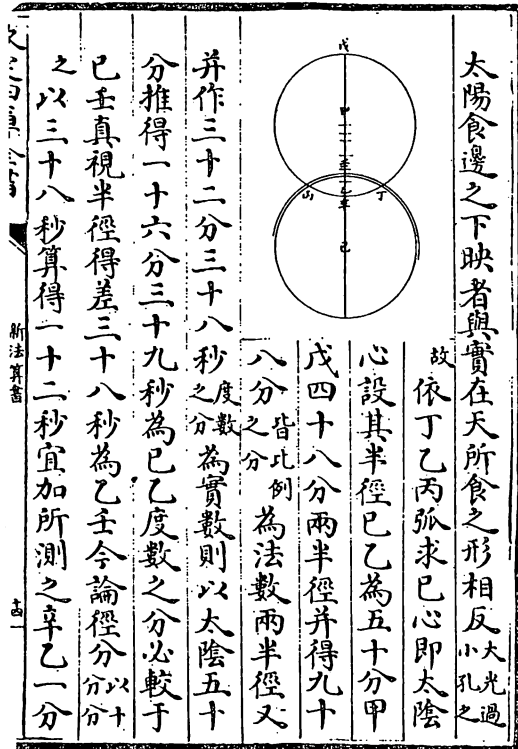 太陽食邊之下映者與實在天所食之形相反大光過小孔之
故依丁乙丙弧求已心即太陰
心設其半徑已乙為五十分甲
戊四十八分兩半徑并得九十
八分皆比例之分為法數兩半徑又
并作三十二分三十八秒度數之分為實數則以太陰五十
分推得一十六分三十九秒為已乙度數之分必較于
已壬真視半徑得差三十八秒為乙壬今論徑分分以十分
之以三十八秒算得一十二秒宜加所測之辛乙一分
戊
甲
乙
辛
丁
已
新法算書